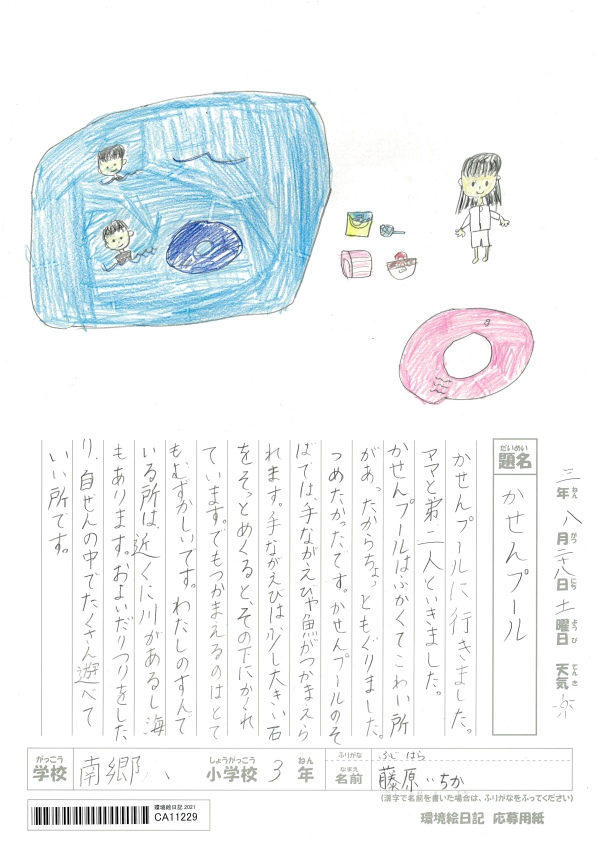 三年八月二十八日土曜日天気
ねんがつにちようびてんき
だいめい
題名
かせんプール
かせんプールに行きました。
ママと弟二人といきました。
かせんプールはふかくてこわい所
があったからちょっともぐりました。
つめたかったです。かせんプールのそ
ばでは、手ながえびや魚がつかまえら
れます。手ながえびは少し大きい石
をそっとめくると、その下にかくれ
ています。でもつかまえるのはとて
もむずかしいです。わたしのすんで
いる所は、近くに川があるし海
もあります。およいだりつりをした
り、自ぜんの中でたくさん遊べて
いい所です。
がっこう しょうがっこう ねん ふりがな ふじはら
学校 南郷 小学校 3 年 なまえ 名前 藤原いちか
(漢字で名前を書いた場合は、ふりがなをふってください)
環境絵日記 2021
CA11229
環境絵日記 応募用紙